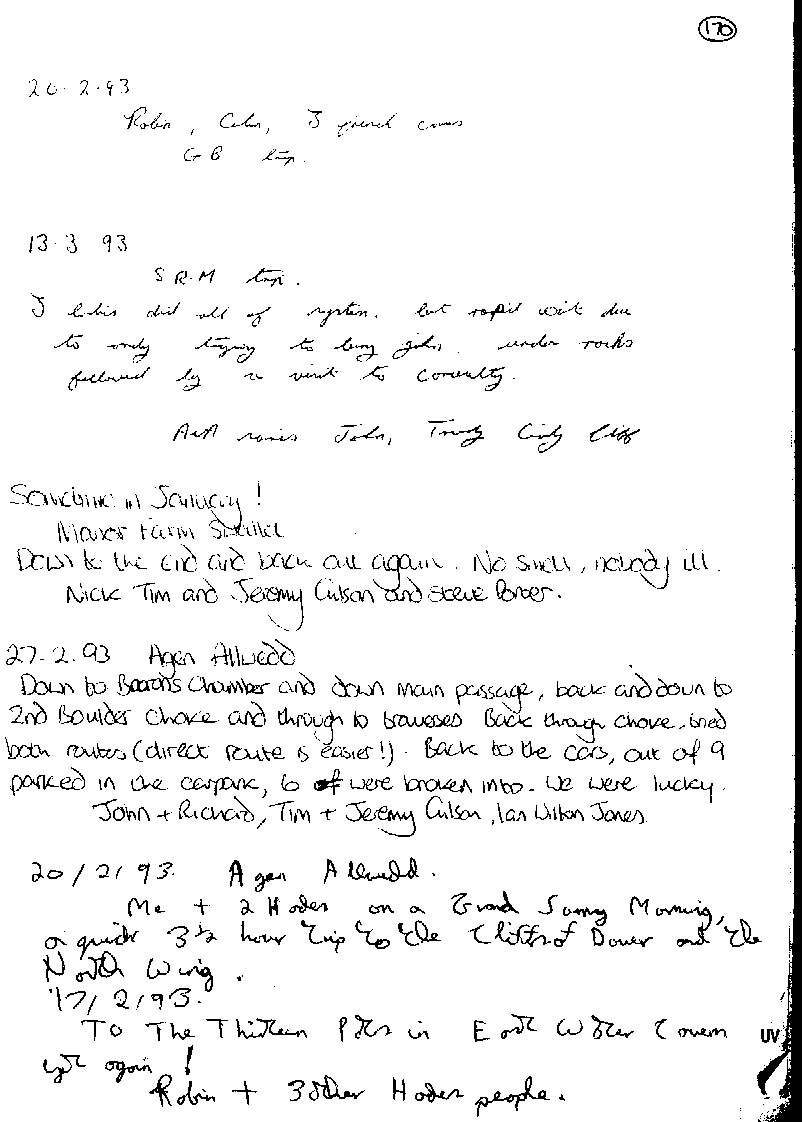 170
20.2.93
Robin, Colin, 3 french cavers
GB trip.
13.3 93
S R.M trip.
3 did all of system. but rapid visit due
to only trying to bury john. under rocks
followed by a visit to casualty.
John, Trudy Cindy Cliff
Sometime in January!
Manor Farm Swallet
Down to the end and back out again. No smell, nobody ill.
Nick Tim and Jeremy Gilson and Steve Porter.
27.2.93 Agen Allwedd
Down to Baron's Chamber and down main passage, back and down to
2nd Boulder Choke and through to traverses Back through choke, tried
both routes (direct route is easier!). Back to the cars, out of 9
parked in the carpark, 6 of were broken into. We were lucky.
John + Richard, Tim + Jeremy Gilson, Ian Wilton Jones.
20/2/93. Agen Allwedd.
Me + 2 Hades on a Grand Sunny Morning,
a quick 3½ hour Trip To The Cliffs of Dover and The
North Wing.
17/2/93.
To The Thirteen Pots in East Water Cavern
yet again!
Robin + 3 other Hades people.
UV